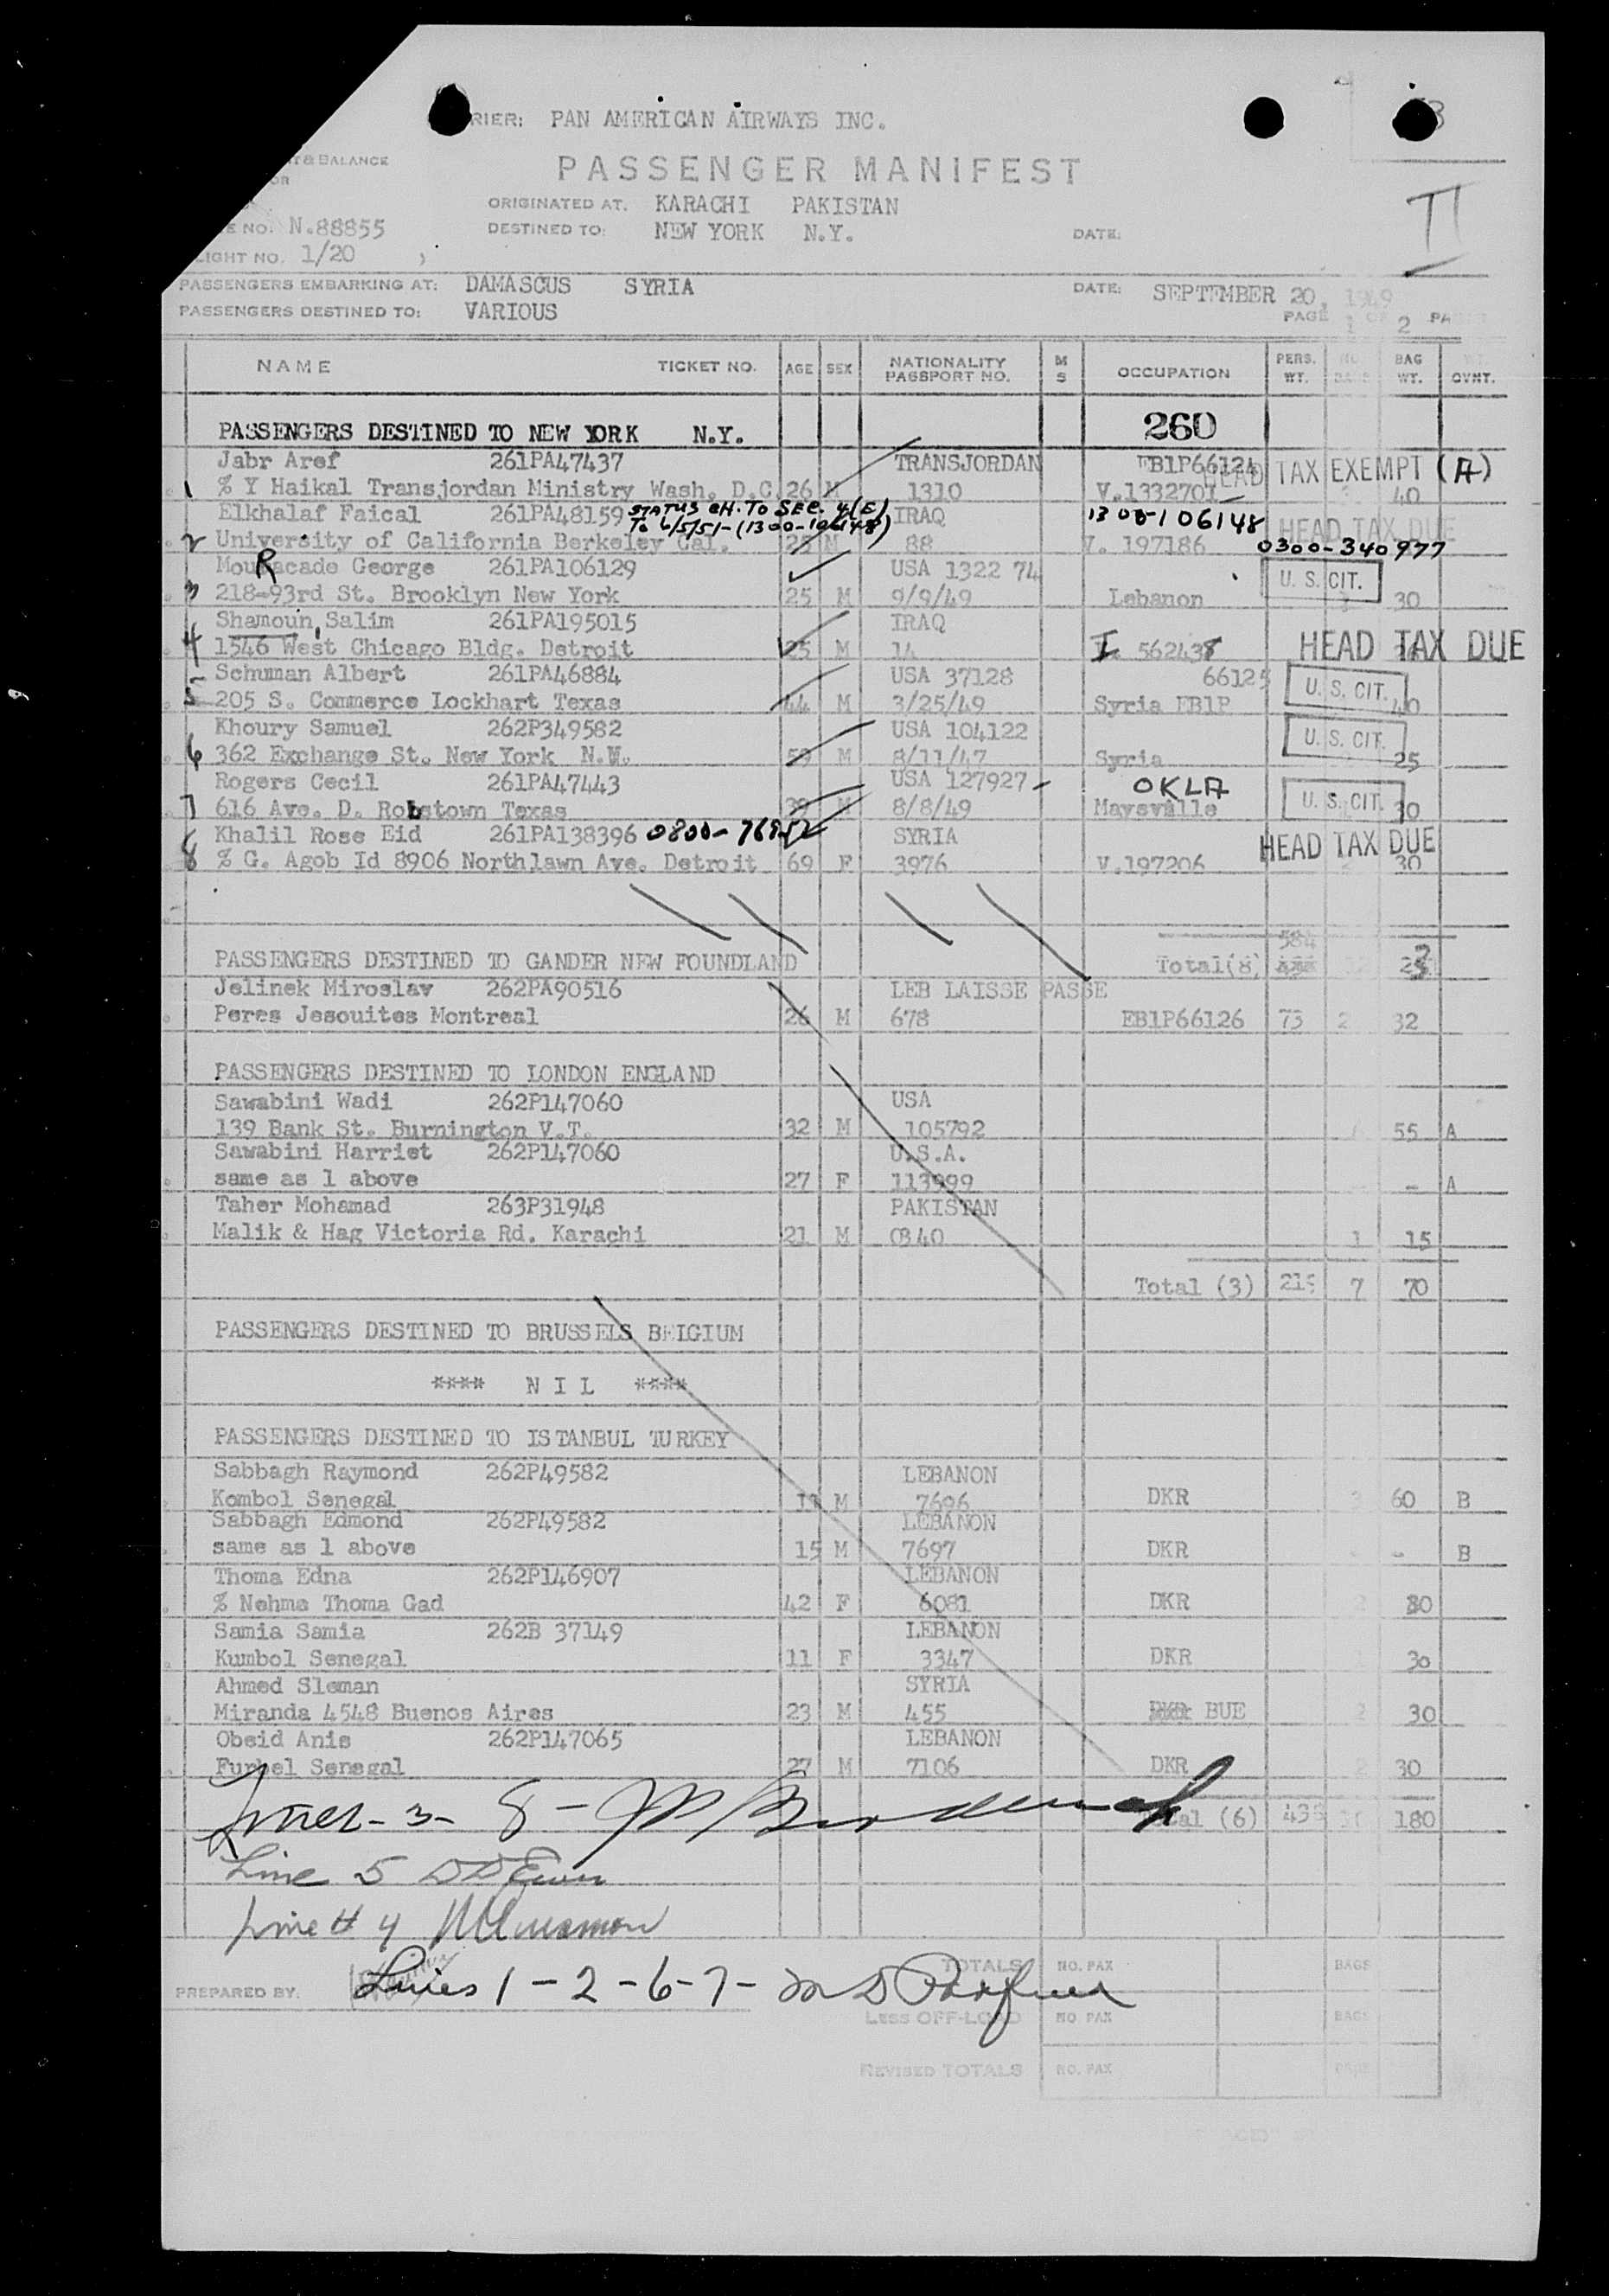 RIER: PAN AMERICAN AIRWAYS INC.
& BALANCE
PASSENGER MANIFEST
ORIGINATED AT. KARACHI PAKISTAN
II
E NO. N.88855 DESTINED TO: NEW YORK N.Y. DATE:
LIGHT NO. 1/20
PASSENGERS EMBARKING AT: DAMASCUS SYRIA DATE: SEPTEMBER 20, 1949
PASSENGERS DESTINED TO: VARIOUS PAGE 1 OF 2
NAME TICKET NO. AGE SEX NATIONALITY PASSPORT NO. M S OCCUPATION PERS. WT. BAG WT. GVNT.
260
PASSENGERS DESTINED TO NEW YORK N.Y.
Jabr Aref 261PA47437 TRANSJORDAN EB1P66124 HEAD TAX EXEMPT (A)
1 % Y Haikal Transjordan Ministry Wash. D.C. 26 M 1310 V.1332701 40
Elkhalaf Faical 261PA48159 STATUS CH. TO SEC. 4(E) IRAQ 1300-106148 HEAD TAX DUE
To 6/5/51-(1300-106148)
2 University of California Berkeley Cal. 25 M 88 V. 197186 0300-340977
Moukacade George 261PA106129 USA 1322 74 U. S. CIT.
R
3 218-93rd St. Brooklyn New York 25 M 9/9/49 Lebanon 30
Shamoun, Salim 261PA195015 IRAQ
4 1546 West Chicago Bldg. Detroit 25 M 14 I. 562438 HEAD TAX DUE
Schuman Albert 261PA46884 USA 37128 66125 U. S. CIT.
5 205 S. Commerce Lockhart Texas 44 M 3/25/49 Syria EB1P 40
Khoury Samuel 262P349582 USA 104122 U. S. CIT.
6 362 Exchange St. New York N.W. 59 M 8/11/47 Syria 25
Rogers Cecil 261PA47443 USA 127927 OKLA U. S. CIT.
7 616 Ave. D. Robstown Texas 39 M 8/8/49 Maysville 30
Khalil Rose Eid 261PA138396 0800-76952 SYRIA HEAD TAX DUE
8 % G. Agob Id 8906 Northlawn Ave. Detroit 69 F 3976 V.197206 30
584
PASSENGERS DESTINED TO GANDER NEW FOUNDLAND Total(8)
Jelinek Miroslav 262PA90516 LEB LAISSE PASSE
Peres Jesouites Montreal 26 M 678 EB1P66126 73 2 32
PASSENGERS DESTINED TO LONDON ENGLAND
Sawabini Wadi 262P147060 USA
139 Bank St. Burnington V.T. 32 M 105792 55 A
Sawabini Harriet 262P147060 U.S.A.
same as 1 above 27 F 113999 - A
Taher Mohamad 263P31948 PAKISTAN
Malik & Hag Victoria Rd. Karachi 21 M 0340 1 15
Total (3) 215 7 70
PASSENGERS DESTINED TO BRUSSELS BELGIUM
**** N I L ****
PASSENGERS DESTINED TO ISTANBUL TURKEY
Sabbagh Raymond 262P49582 LEBANON
Kombol Senegal 19 M 7696 DKR 3 60 B
Sabbagh Edmond 262P49582 LEBANON
same as 1 above 15 M 7697 DKR - - B
Thoma Edna 262P146907 LEBANON
% Nehme Thoma Gad 42 F 6081 DKR 30
Samia Samia 262B 37149 LEBANON
Kumbol Senegal 11 F 3347 DKR 30
Ahmed Sleman SYRIA
Miranda 4548 Buenos Aires 23 M 455 BUE 2 30
Obeid Anis 262P147065 LEBANON
Furbel Senegal 27 M 7106 DKR 2 30
Lines - 3 - 8 -
Total (6) 435 180
Line 5
Line # 4
TOTALS NO. PAX BAGS
PREPARED BY. Lines 1-2-6-7-
LESS OFF-LOAD NO PAX BAGS
REVISED TOTALS NO. PAX